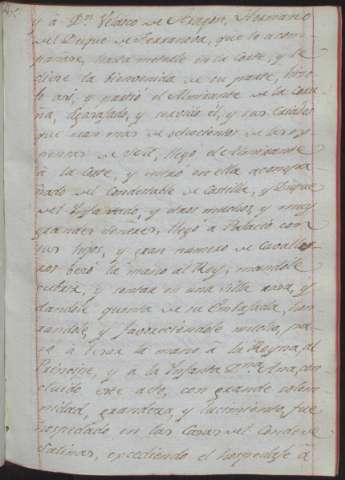 y à Dⁿ. Vrano de Aragon, Hermano
del Duque de Terranova, que lo acom-
pañase, hasta meterle en la Corte, y le
diese la bienvenida de su parte, hizo-
lo asi, y partió el Almirante de la
y y sus Criados
que eran mas de ochocientos de las ex-
pensas de llegó el Almirante
à la Corte, y entró en ella acompa-
ñado del Condestable de Castilla, y Duque
del Infantado, y otros muchos, y muy
grandes Señores, llegó à Palacio con
sus hijos, y gran numero de Cavalle-
ros besó la mano al Rey, mandole
cubrir, y sentar en una silla rasa, y
dandole quenta de su Embajada, hon-
randole, y favoreciendole mucho, pa-
só à besar la mano à la Reyna, al
Principe, y à la Infanta Dª. Ana, con-
cluido este acto, con grande solem-
nidad, grandeza, y lucimiento, fue
hospedado en las Casas del Conde de
Salinas, excediendo el hospedaje à